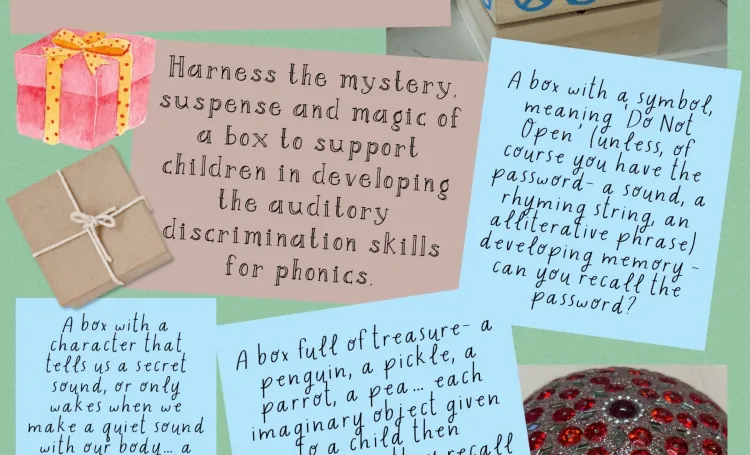 Harness the mystery,
suspense and magic of
a box to support
children in developing
the auditory
discrimination skills
for phonics.
A box with a symbol,
meaning 'Do Not
Open' (unless, of
course you have the
password- a sound, a
rhyming string, an
alliterative phrase)
developing memory -
can you recall the
password?
A box with a
character that
tells us a secret
sound, or only
wakes when we
make a quiet sound
with our body... a
A box full of treasure- a
penguin, a pickle, a
parrot, a pea... each
imaginary object given
to a child then
they recall